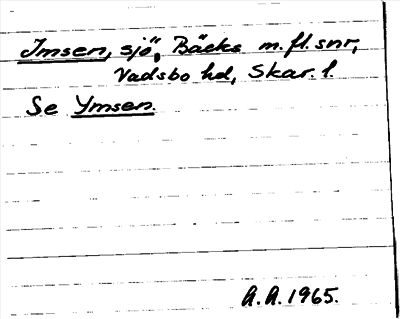 Imsen, sjö, Bäcks m.fl. snr,
Vadsbo hd, Skar. l.
Se Ymsen.
A.A. 1965.